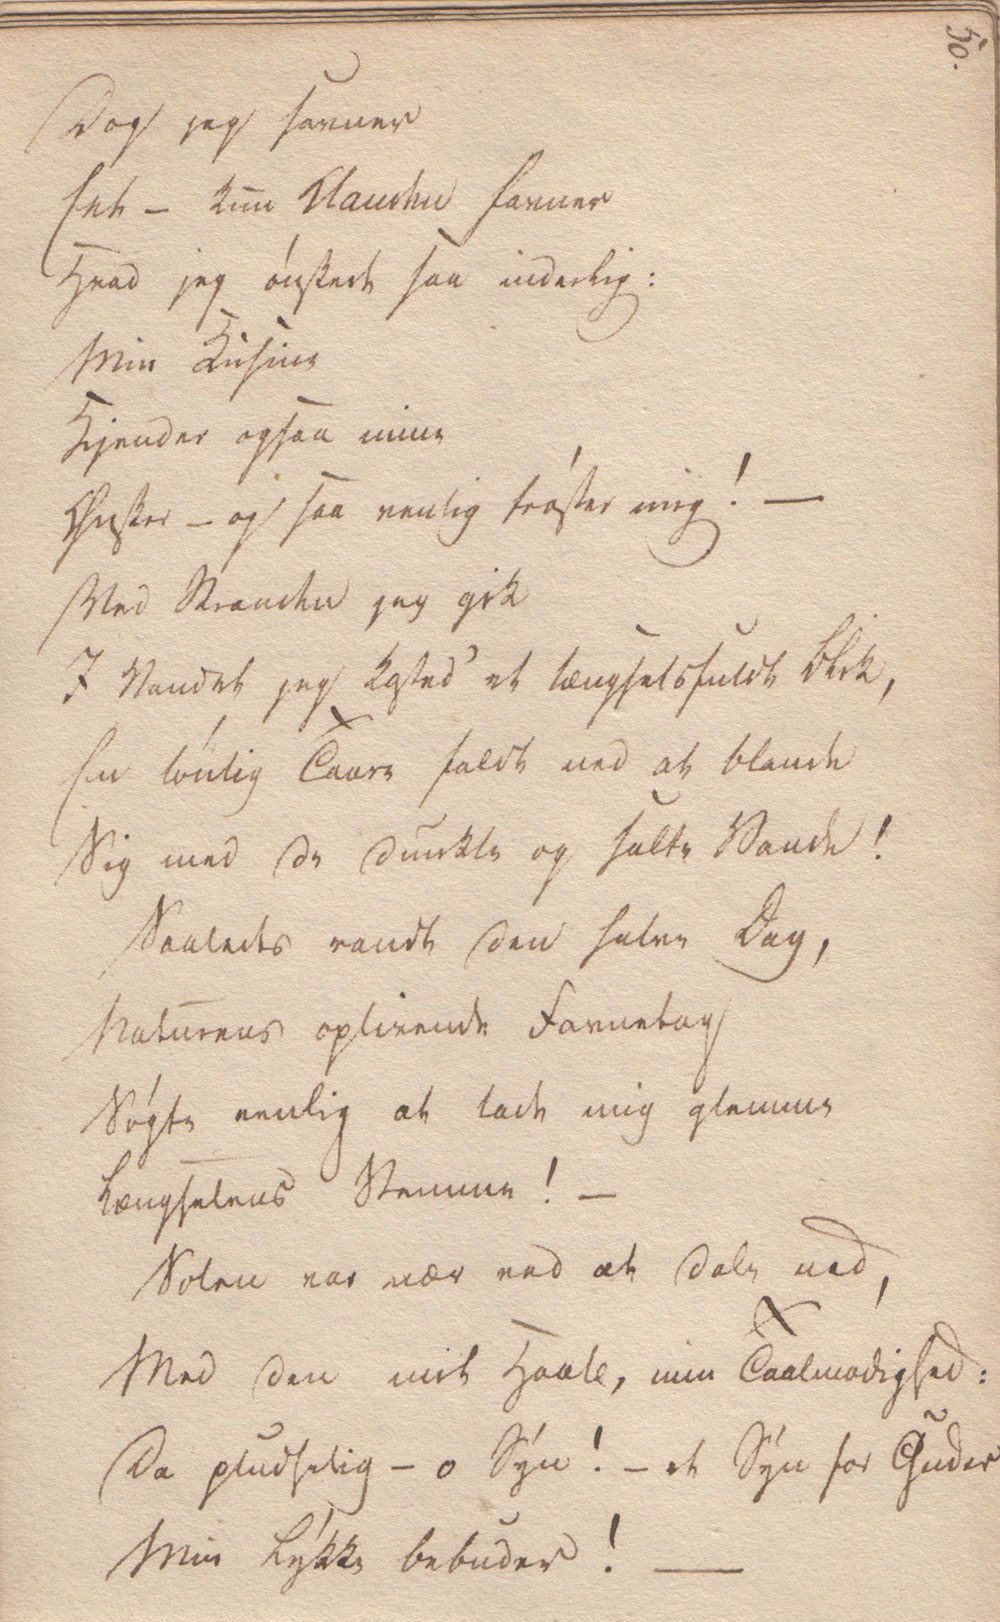 50.
Dog jeg savner
Eet – kun Skanden favner
Hvad jeg ønsked saa inderlig:
Min Kusine
Kjender ogsaa mine
Ønsker – og saa venlig trøster mig! —
Ved Stranden jeg gik
I Vandet jeg kasted' et længselsfuldt Blik,
En lønlig Taare faldt ned at blande
Sig med de dunkle og salte Vande!
Saaledes randt den halve Dag,
Naturens oplivende Favnetag
Søgte venlig at lade mig glemme
Længselens Stemme! –
Solen var nær ved at dale ned,
Med den mit Haab, min Taalmodighed:
Da pludselig – o Syn! – et Syn for Guder
Min Lykke bebuder! —